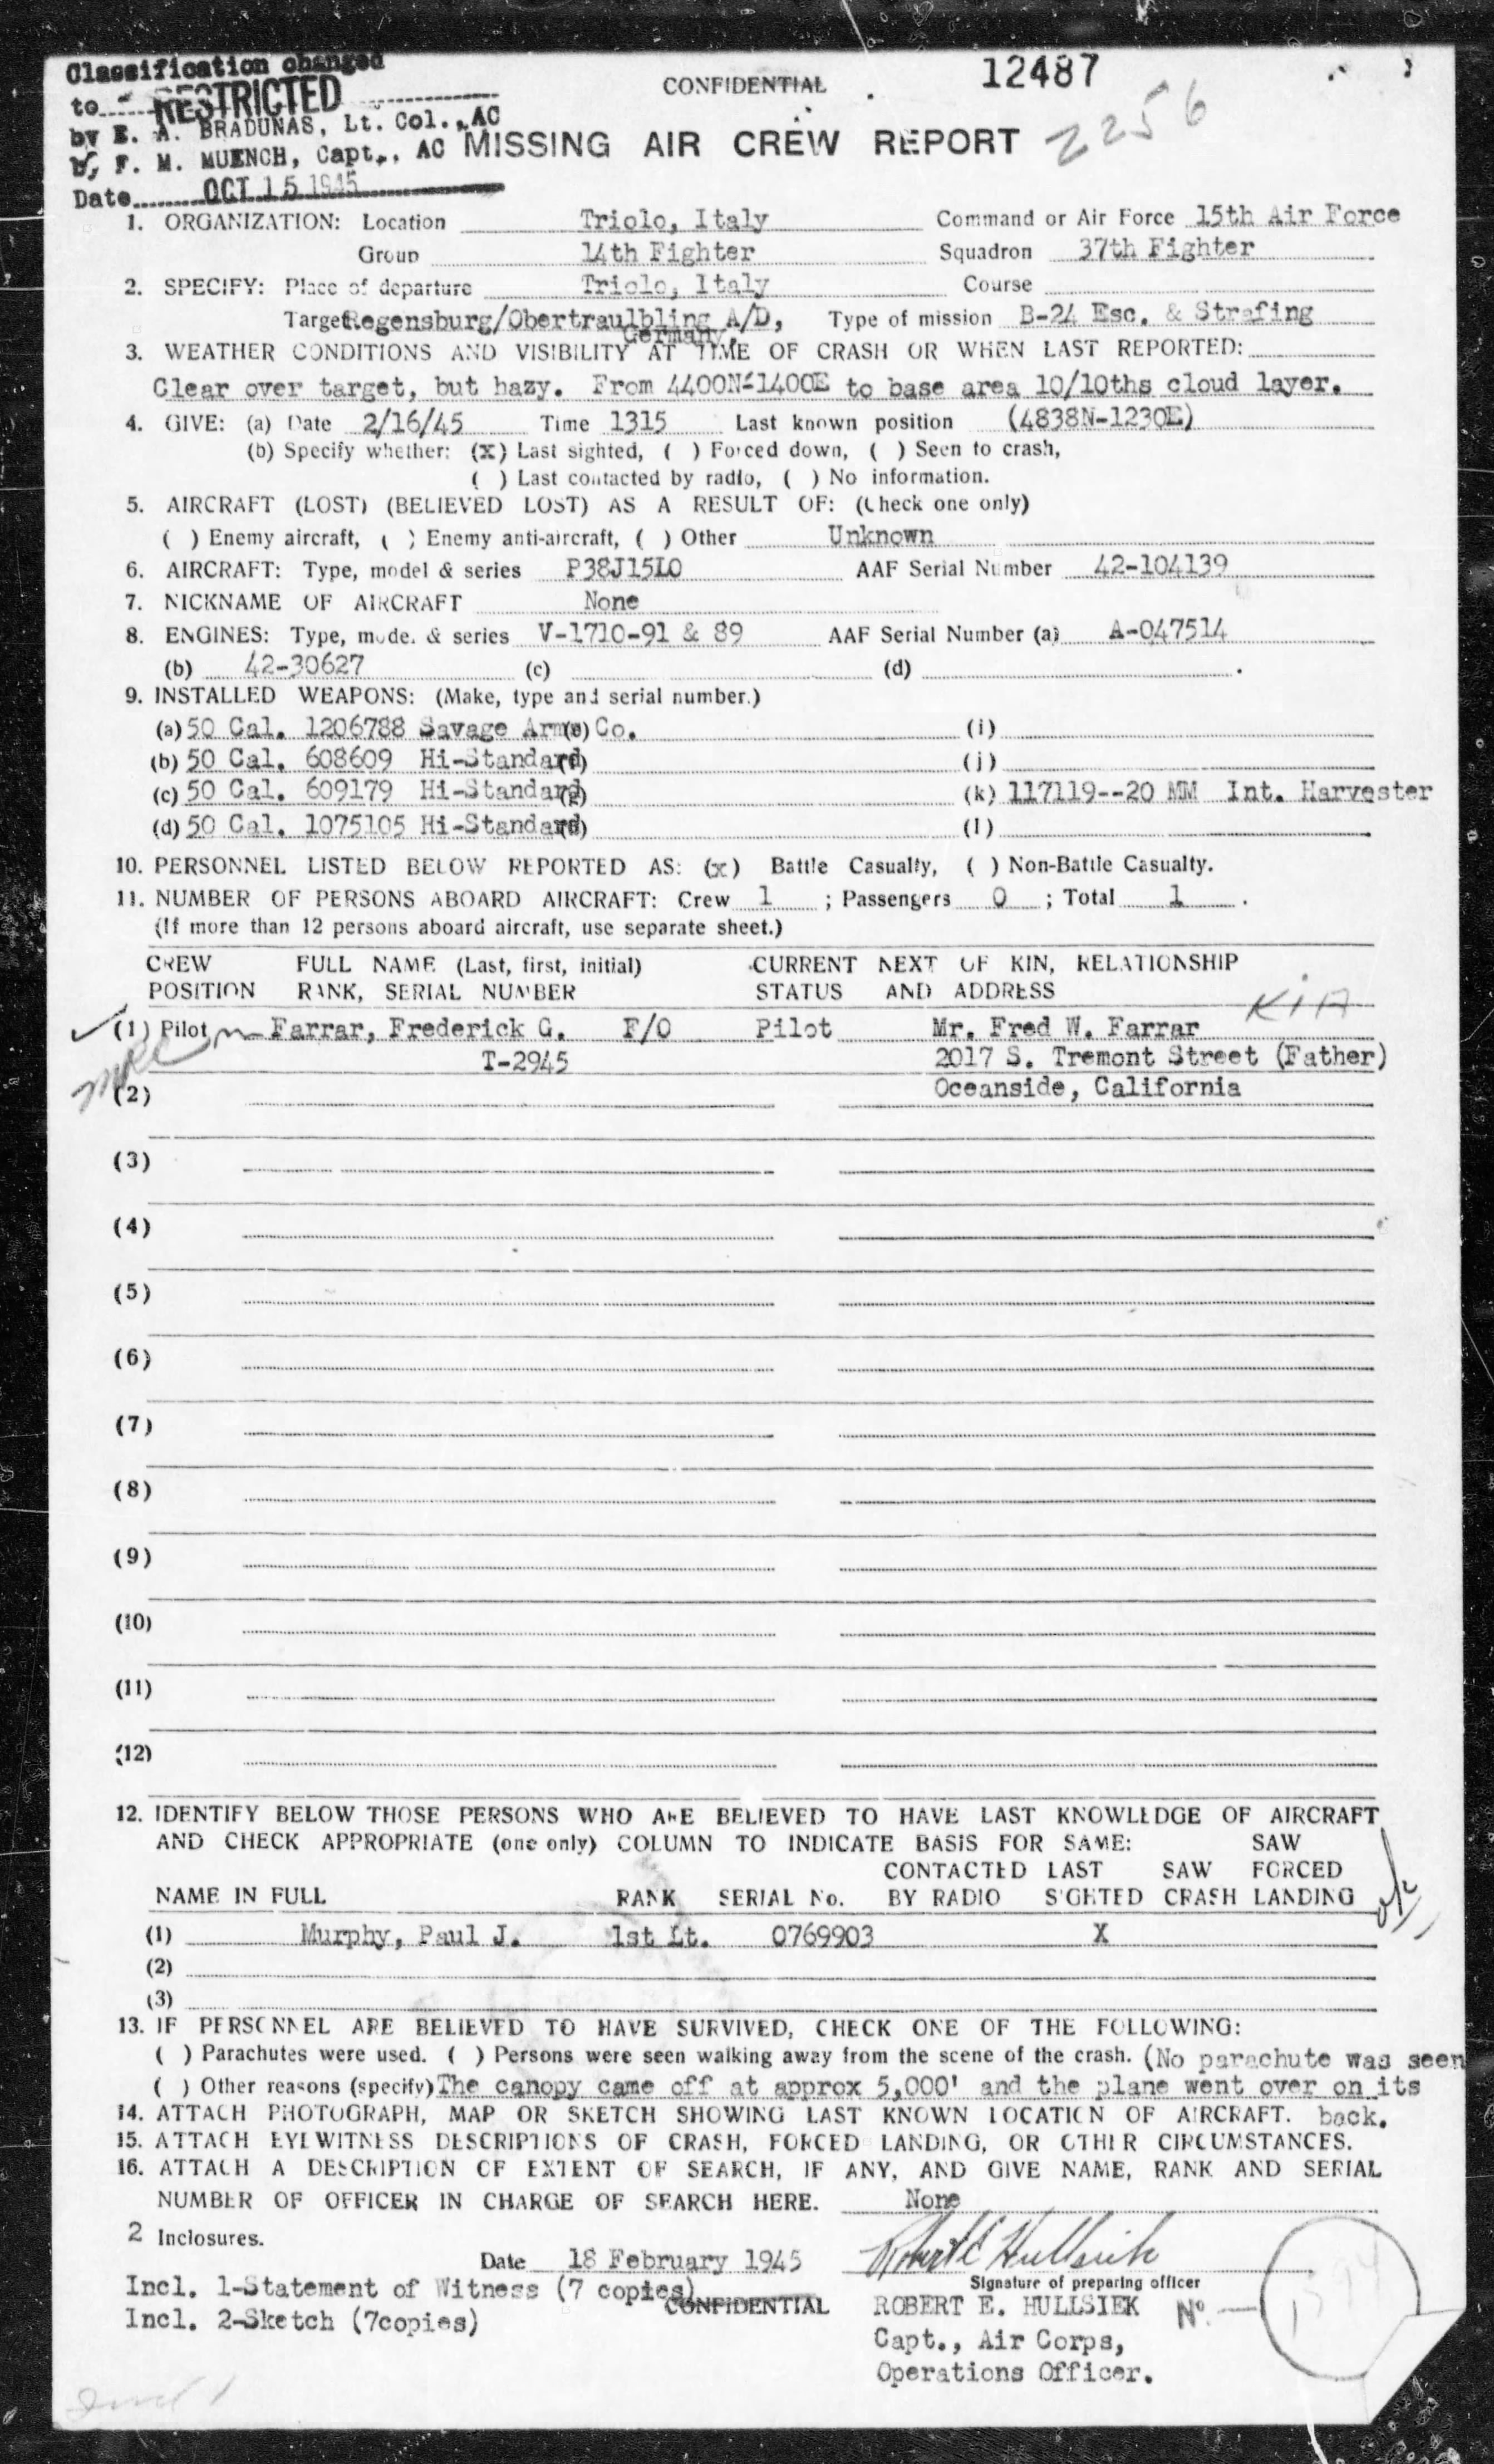 Classification changed
to RESTRICTED
by E. A. BRADUNAS, Lt. Col., AC
by F. M. MUENCH, Capt., AC
Date OCT 15 1945
CONFIDENTIAL
12487
2256
MISSING AIR CREW REPORT
1. ORGANIZATION: Location Triolo, Italy Command or Air Force 15th Air Force
Group 14th Fighter Squadron 37th Fighter
2. SPECIFY: Place of departure Triolo, Italy Course
Target Regensburg/Obertraulbling A/D, Type of mission B-24 Esc. & Strafing
Germany.
3. WEATHER CONDITIONS AND VISIBILITY AT TIME OF CRASH OR WHEN LAST REPORTED:
Clear over target, but hazy. From 4400N-1400E to base area 10/10ths cloud layer.
4. GIVE: (a) Date 2/16/45 Time 1315 Last known position (4838N-1230E)
(b) Specify whether: (X) Last sighted, ( ) Forced down, ( ) Seen to crash,
( ) Last contacted by radio, ( ) No information.
5. AIRCRAFT (LOST) (BELIEVED LOST) AS A RESULT OF: (Check one only)
( ) Enemy aircraft, ( ) Enemy anti-aircraft, ( ) Other Unknown
6. AIRCRAFT: Type, model & series P38J15LO AAF Serial Number 42-104139
7. NICKNAME OF AIRCRAFT None
8. ENGINES: Type, mode. & series V-1710-91 & 89 AAF Serial Number (a) A-047514
(b) 42-30627 (c) (d) .
9. INSTALLED WEAPONS: (Make, type and serial number.)
(a) 50 Cal. 1206788 Savage Arms (e) Co. (i)
(b) 50 Cal. 608609 Hi-Standard (f) (j)
(c) 50 Cal. 609179 Hi-Standard (g) (k) 117119--20 MM Int. Harvester
(d) 50 Cal. 1075105 Hi-Standard (h) (l)
10. PERSONNEL LISTED BELOW REPORTED AS: (x) Battle Casualty, ( ) Non-Battle Casualty.
11. NUMBER OF PERSONS ABOARD AIRCRAFT: Crew 1 ; Passengers 0 ; Total 1 .
(If more than 12 persons aboard aircraft, use separate sheet.)
CREW FULL NAME (Last, first, initial) CURRENT NEXT OF KIN, RELATIONSHIP
POSITION RANK, SERIAL NUMBER STATUS AND ADDRESS
KIA
(1) Pilot Farrar, Frederick G. F/O Pilot Mr. Fred W. Farrar
T-2945 2017 S. Tremont Street (Father)
(2) Oceanside, California
(3)
(4)
(5)
(6)
(7)
(8)
(9)
(10)
(11)
(12)
12. IDENTIFY BELOW THOSE PERSONS WHO ARE BELIEVED TO HAVE LAST KNOWLEDGE OF AIRCRAFT
AND CHECK APPROPRIATE (one only) COLUMN TO INDICATE BASIS FOR SAME: SAW
CONTACTED LAST SAW FORCED
NAME IN FULL RANK SERIAL No. BY RADIO SIGHTED CRASH LANDING
(1) Murphy, Paul J. 1st Lt. 0769903 X
(2)
(3)
13. IF PERSONNEL ARE BELIEVED TO HAVE SURVIVED, CHECK ONE OF THE FOLLOWING:
( ) Parachutes were used. ( ) Persons were seen walking away from the scene of the crash. (No parachute was seen
( ) Other reasons (specify) The canopy came off at approx 5,000' and the plane went over on its
14. ATTACH PHOTOGRAPH, MAP OR SKETCH SHOWING LAST KNOWN LOCATION OF AIRCRAFT. back.
15. ATTACH EYEWITNESS DESCRIPTIONS OF CRASH, FORCED LANDING, OR OTHER CIRCUMSTANCES.
16. ATTACH A DESCRIPTION OF EXTENT OF SEARCH, IF ANY, AND GIVE NAME, RANK AND SERIAL
NUMBER OF OFFICER IN CHARGE OF SEARCH HERE. None
2 Inclosures.
Date 18 February 1945 Robert E Hullsiek
Signature of preparing officer
Incl. 1-Statement of Witness (7 copies)
CONFIDENTIAL ROBERT E. HULLSIEK No.
Incl. 2-Sketch (7copies) Capt., Air Corps,
Operations Officer.